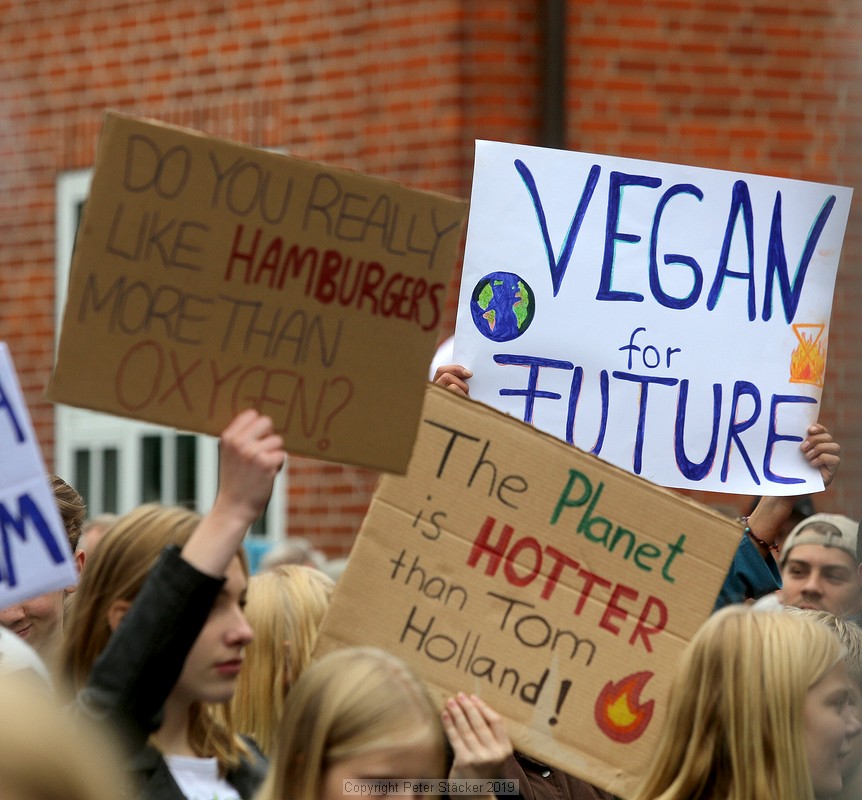 DO YOU REALLY
LIKE HAMBURGERS
MORE THAN
OXYGEN?
VEGAN
for
FUTURE
The Planet
is HOTTER
than Tom
Holland!
M
Copyright Peter Stäcker 2019